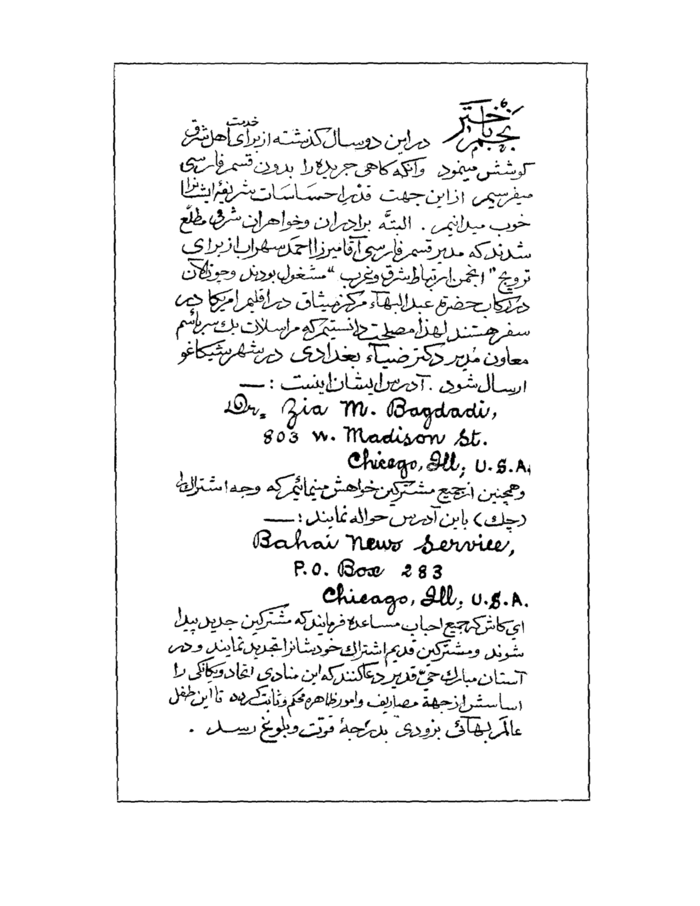 نجم باختر
در این دو سال گذشته از برای خدمت اهل شرق
کوشش مینمود وانکه کاهی جریده را بدون قسم فارسی
میفرستیم از این جهت قدر احساسات شریفهٔ ایشانرا
خوب میدانیم . البتّه برادران وخواهران شرقی مطلّع
شدند که مدیر قسم فارسی آقا میرزا احمد سهراب از برای
ترویج "انجمن ارتباط شرق وغرب" مشغول بودند وچون الآن
در رکاب حضرة عبدالبهآء مرکز میثاق در اقلیم امریکا در
سفر هستند لهذا مصلحت دانستیم که مراسلات یک سر باسم
معاون مدیر دکتر ضیآء بغدادی در شهر شیکاغو
ارسال شود . آدرس ایشان اینست : —
Dr. Zia M. Bagdadi,
803 W. Madison St.
Chicego, Ill; U.S.A,
وهمچنین از جمیع مشترکین خواهش مینمائیم که وجه اشتراک را
(چک) باین آدرس حواله نمایند : —
Bahai News Service,
P.O. Box 283
Chicago, Ill; U.S.A.
ای کاش که جمیع احباب مساعده فرمایند که مشترکین جدید پیدا
شوند ومشترکین قدیم اشتراک خودشانرا تجدید نمایند و در
آستان مبارک حیّ قدیر دعا کنند که این منادی اتحاد ویکانکی را
اساسش از جهة مصاریف وامور ظاهره محکم وثابت کردد تا این طفل
عالم بهائی بزودی بدرجهٔ قوّت وبلوغ رسد .